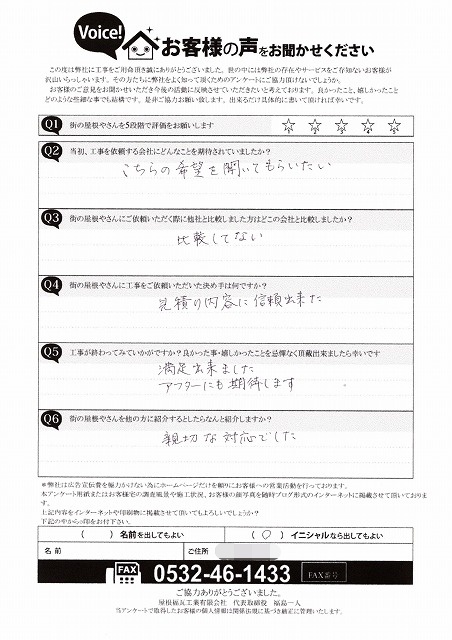 Voice!
お客様の声をお聞かせください
この度は弊社に工事をご用命頂き誠にありがとうございました。世の中には弊社の存在やサービスをご存知ないお客様が
沢山いらっしゃいます。その方たちに弊社をよく知って頂くためのアンケートにご協力頂けないでしょうか。
お客様のご意見をお聞かせいただき今後の活動に反映させていただきたいと考えております。良かったこと、嬉しかったこと
どのような些細な事でも結構です。是非ご協力お願い致します。出来るだけ具体的に書いて頂ければ幸いです。
Q1 街の屋根やさんを5段階で評価をお願いします
Q2 当初、工事を依頼する会社にどんなことを期待されていましたか？
こちらの希望を聞いてもらいたい
Q3 街の屋根やさんにご依頼いただく際に他社と比較しました方はどこの会社と比較しましたか？
比較してない
Q4 街の屋根やさんに工事をご依頼いただいた決め手は何ですか？
見積り内容に信頼出来た
Q5 工事が終わってみていかがですか？良かった事・嬉しかったことを忌憚なく頂戴出来ましたら幸いです
満足出来ました
アフターにも期待します
Q6 街の屋根やさんを他の方に紹介するとしたらなんと紹介しますか？
親切な対応でした
＊弊社は広告宣伝費を極力かけない為にホームページだけを頼りにお客様への営業活動を行っております。
本アンケート用紙またはお客様宅の調査風景や施工状況、お客様の顔写真を随時ブログ形式のインターネットに掲載させて頂いております。
上記内容をインターネットや印刷物に掲載させて頂いてもよろしいでしょうか？
下記の中から○印をお付け下さい。
（　）名前を出してもよい （○）イニシャルなら出してもよい
名前 ご住所
FAX 0532-46-1433 FAX番号
ご協力ありがとうございました。
屋根福瓦工業有限会社 代表取締役 福島一人
当アンケートで取得したお客様の個人情報は関係法規に基づき適正に管理いたします。